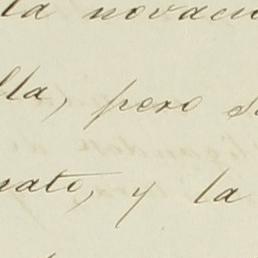 la novaci
lla, pero s
nato, y la